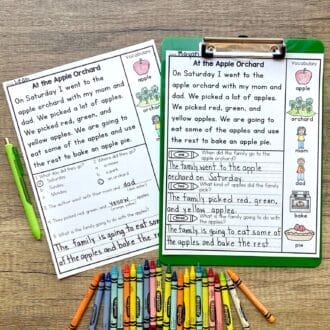 Vocabulary
At the Apple Orchard
On Saturday I went to the
apple orchard with my mom and
dad. We picked a lot of apples.
We picked red, green, and
yellow apples. We are going to
eat some of the apples and use
the rest to bake an apple pie.
Saturday
Sunday
dad
yellow
4. What is the family going to do with the apples?
The family is going to eat some
of the apples and bake the rest
Vocabulary
At the Apple Orchard
On Saturday I went to the
apple orchard with my mom and
dad. We picked a lot of apples.
We picked red, green, and
yellow apples. We are going to
eat some of the apples and use
the rest to bake an apple pie.
When did the family go to the
apple orchard?
The family went to the apple
orchard on Saturday.
What kind of apples did the family
pick?
The family picked red, green,
and yellow apples.
What is the family going to do with
the apples?
The family is going to eat some
of the apples and bake the rest
apple
orchard
mom
dad
bake
pie